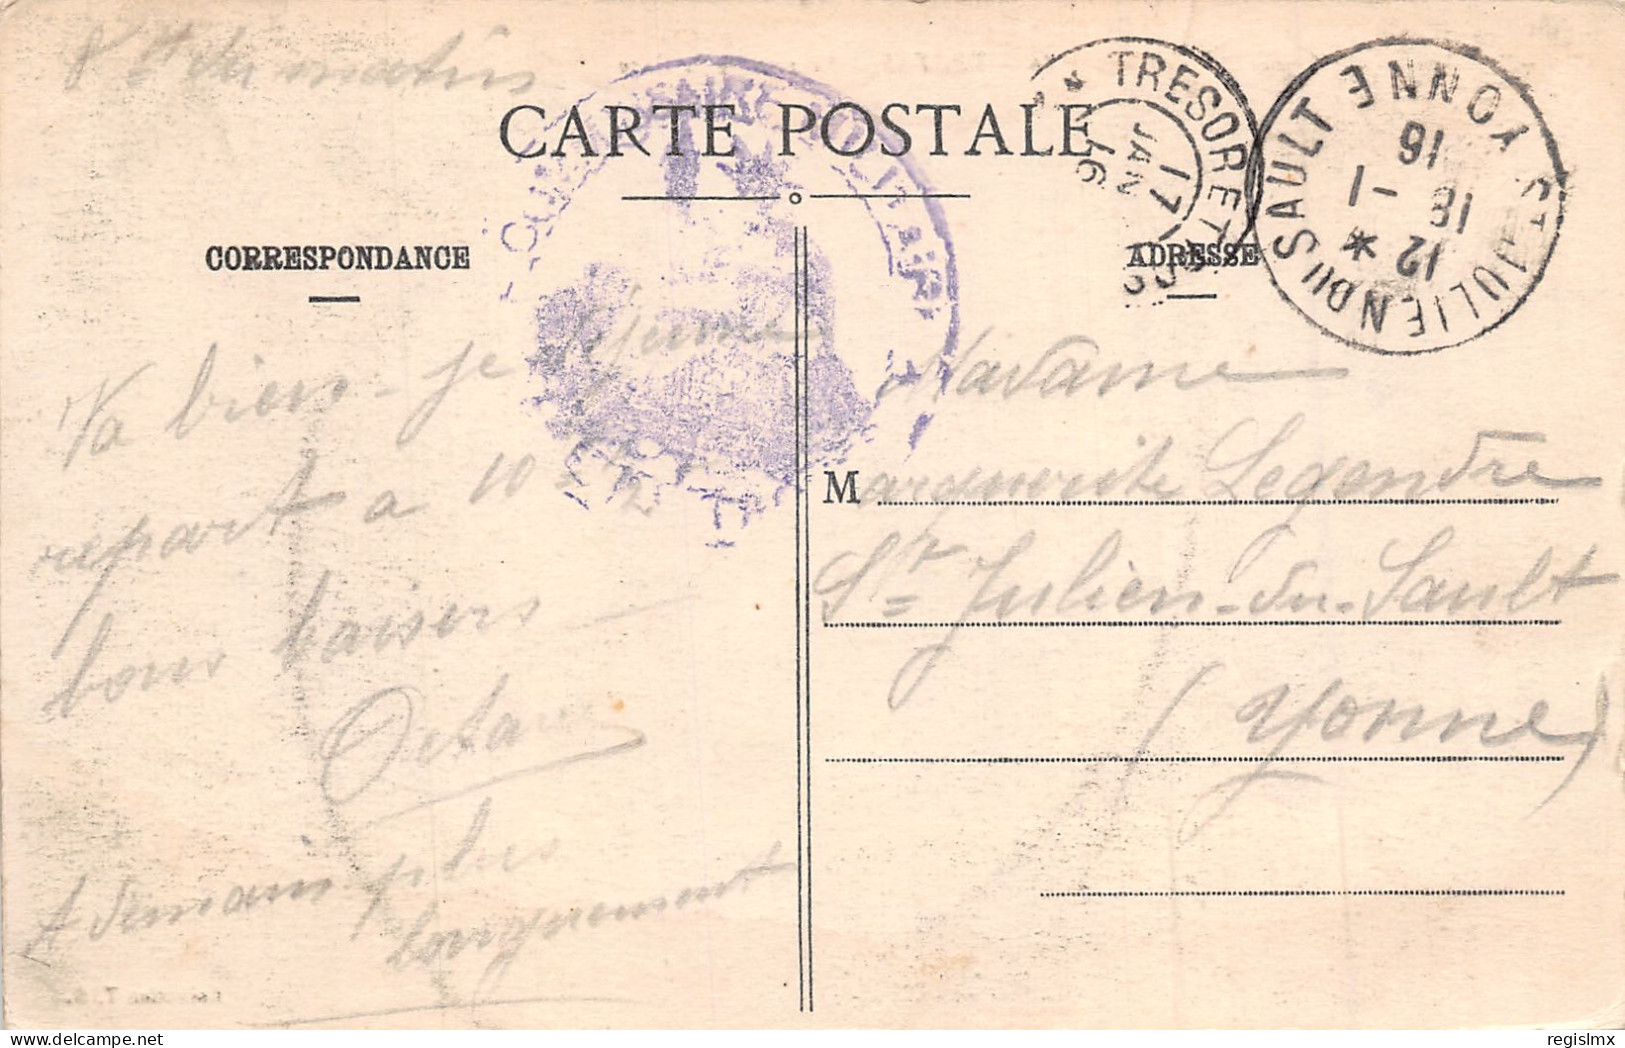 du matin
CARTE POSTALE
CORRESPONDANCE
ADRESSE
TRESOR ET POSTES
17 JAN 16
ST JULIEN DU SAULT YONNE
12 * 18 -1 16
Va bien - je déjeune
repart a 10 h 1/2
bons baisers
Octave
A demain plus
longuement
Madame
Marguerite Legendre
St Julien-du-Sault
(Yonne)
regislmx